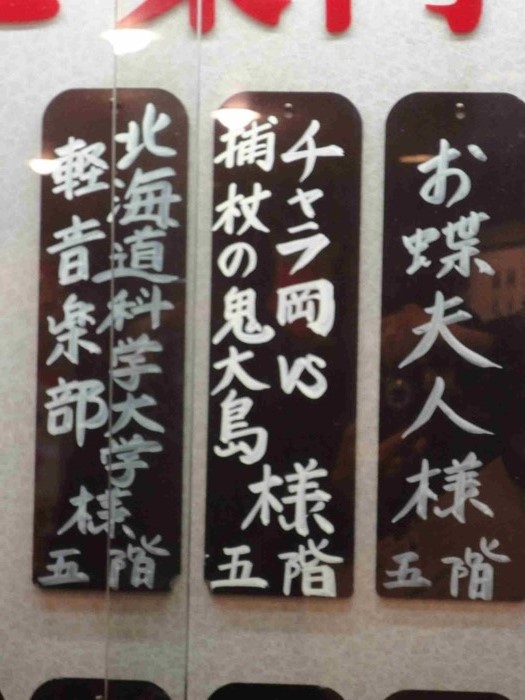 お蝶夫人様
五階
チャラ岡VS
捕杖の鬼大島
様
五階
北海道科学大学
軽音楽部
様
五階